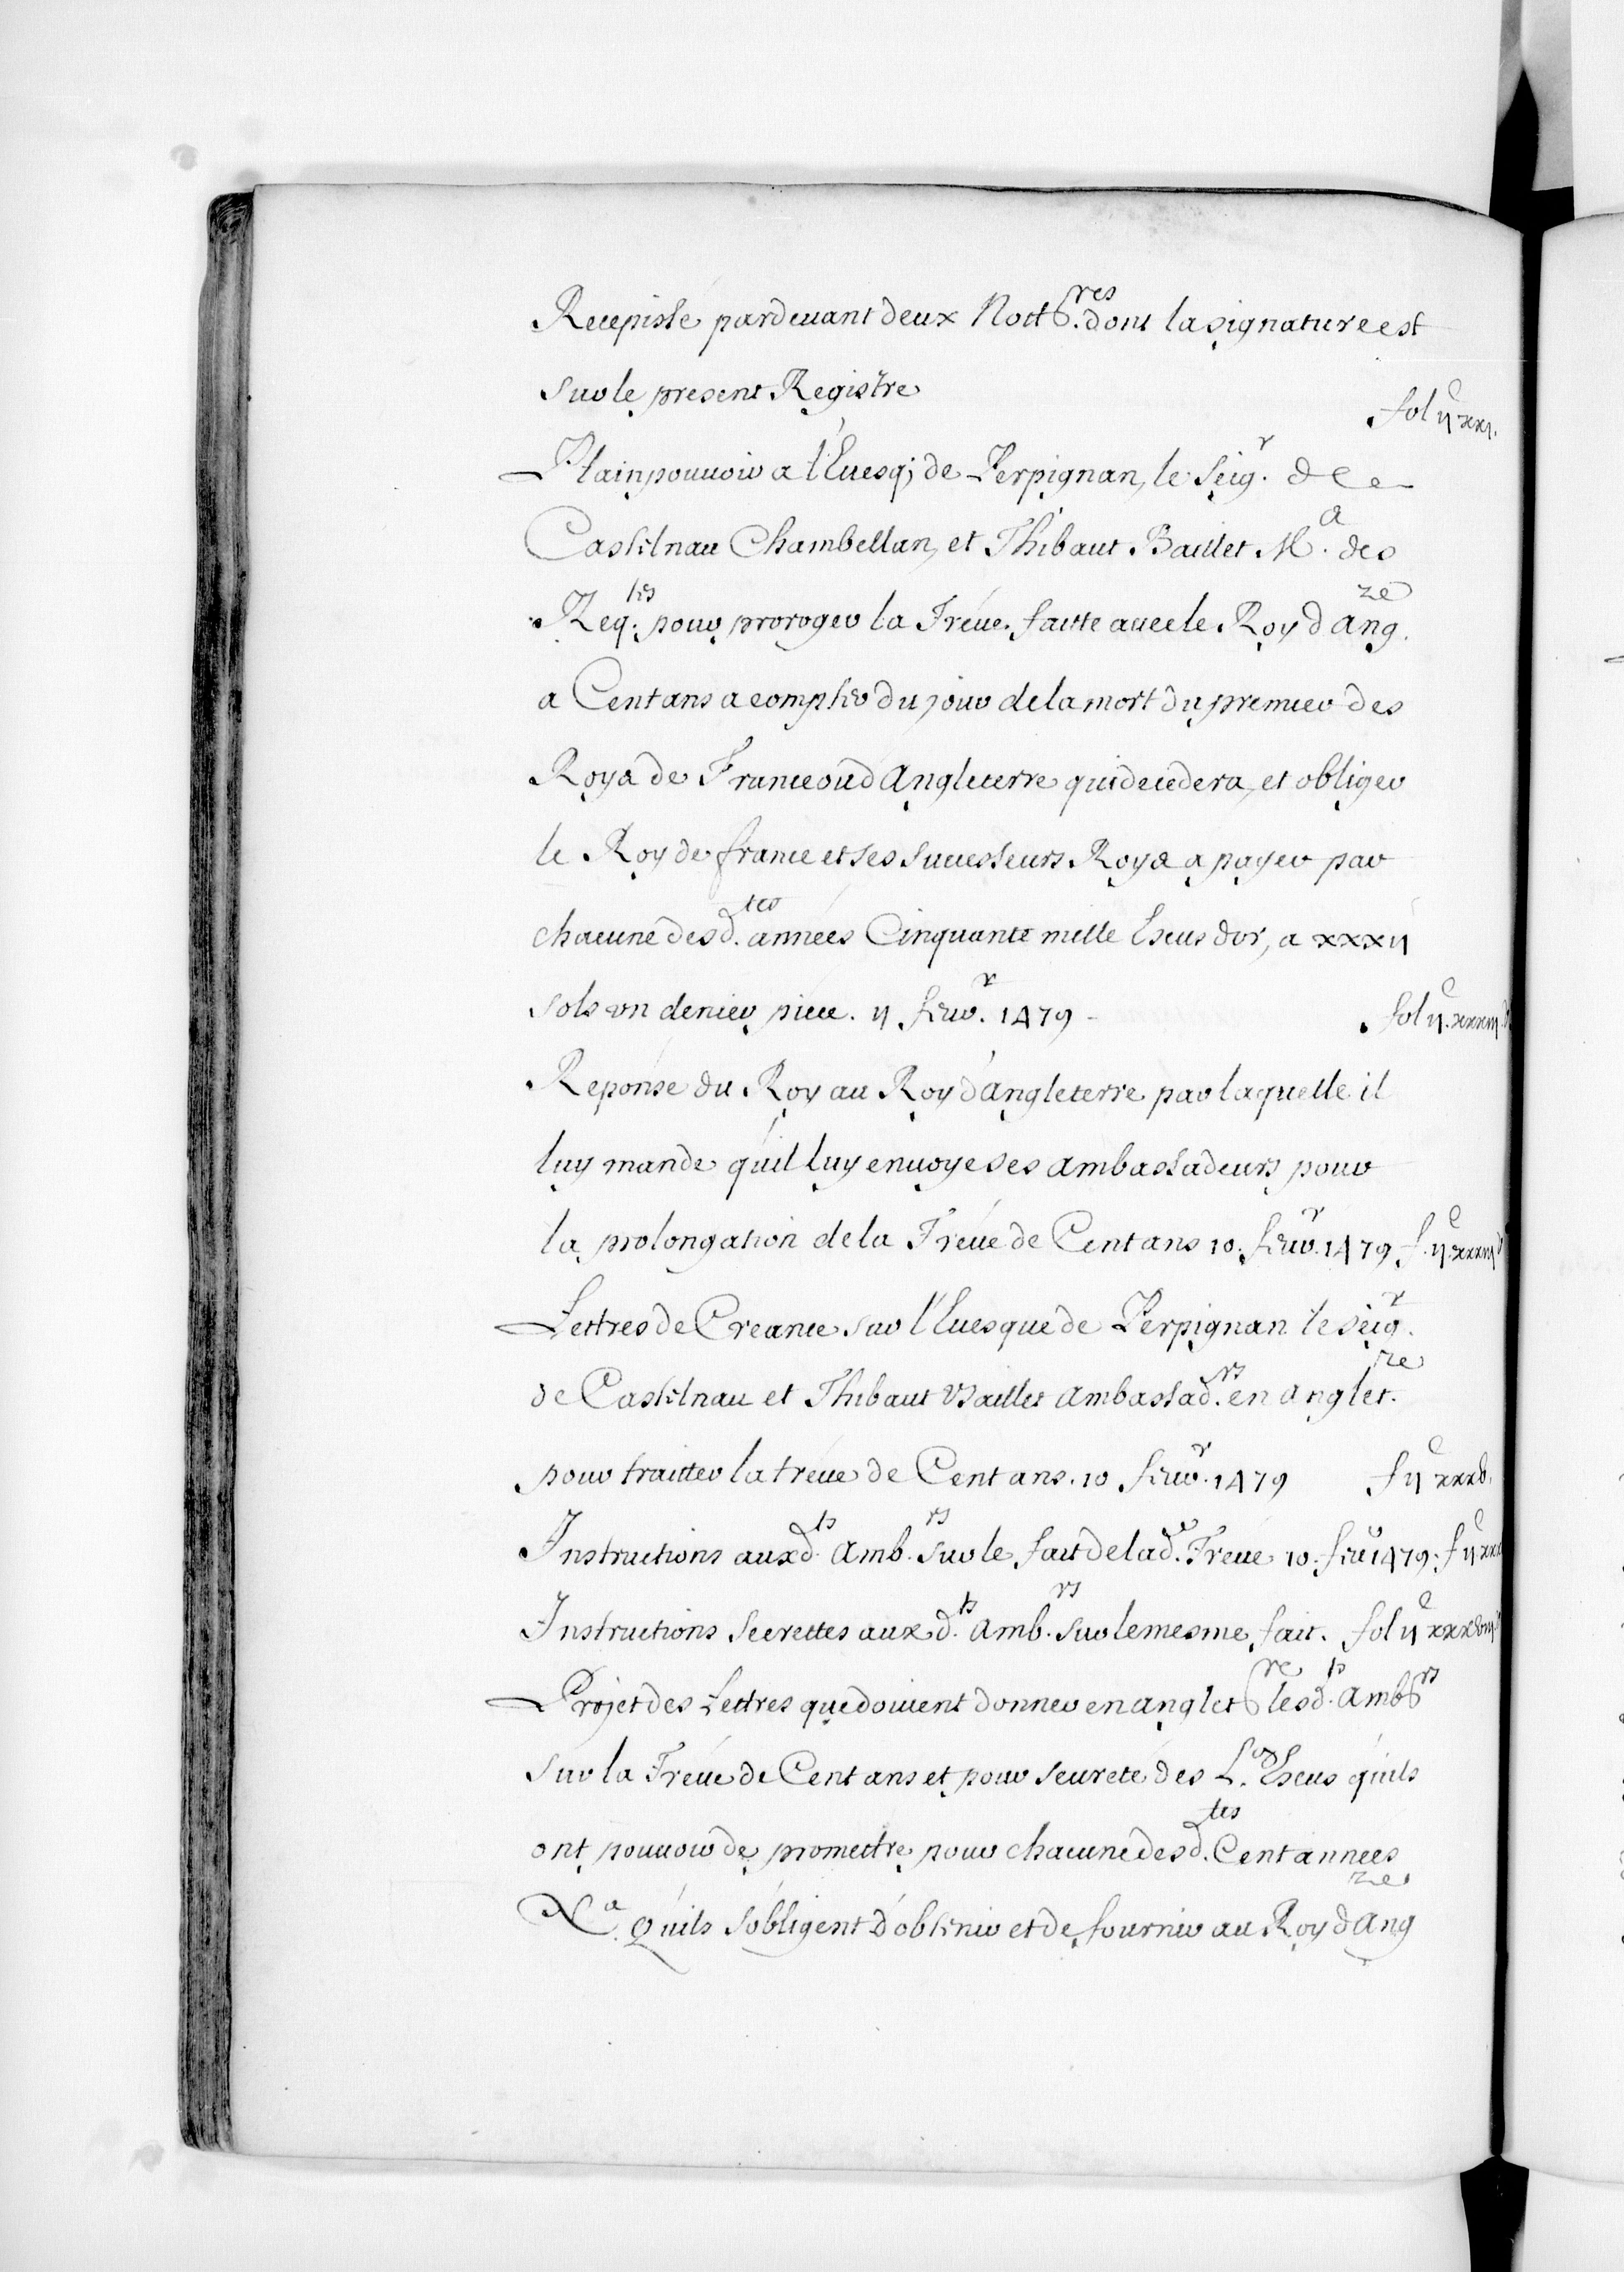 Recepissé pardeuant deux Nott.res dont la signature est
sur le present Registre
fol ijc xxj.
Plain pouuoir a l'Euesq; de Perpignan, le Seig.r de
Castelnau Chambellan, et Thibaut Baillet M.e des
Req.tes pour proroger la Tréue faitte auec le Roy d'Ang.re
a Cent ans a compter du jour de la mort du premier des
Roys de France ou d'Angleterre qui decedera, et obliger
le Roy de france et ses successeurs Roys a payer par
chacune desd.tes années Cinquante mille Escus d'or, a xxxij
sols vn denier piece. ij feur.r 1479
fol ijc. xxxiij
Reponse du Roy au Roy d'Angleterre par laquelle il
luy mande qu'il luy enuoye ses ambassadeurs pour
la prolongation de la Tréue de Cent ans 10. feur.r 1479 f. ijc. xxxiij
Lettres de Creance sur l'Euesque de Perpignan le seig.r
de Castelnau et Thibaut Baillet Ambassad.rs en Anglet.re
pour traitter la tréue de Cent ans. 10 feur.r 1479 f ijc xxxv.
Instructions auxd.ts Amb.rs sur le fait de lad.e Treue 10. feur 1479. f ijc xxx
Instructions secrettes auxd.ts Amb.rs sur le mesme fait. fol ijc xxxviij
Projet des Lettres que doiuent donner en Anglet.re lesd.ts Amb.rs
sur la Tréue de Cent ans et pour seureté des L.m Escus qu'ils
ont pouuoir de promettre pour chacune desd.tes Cent années
Qu'ils s'obligent d'obtenir et de fournir au Roy d'Ang.re